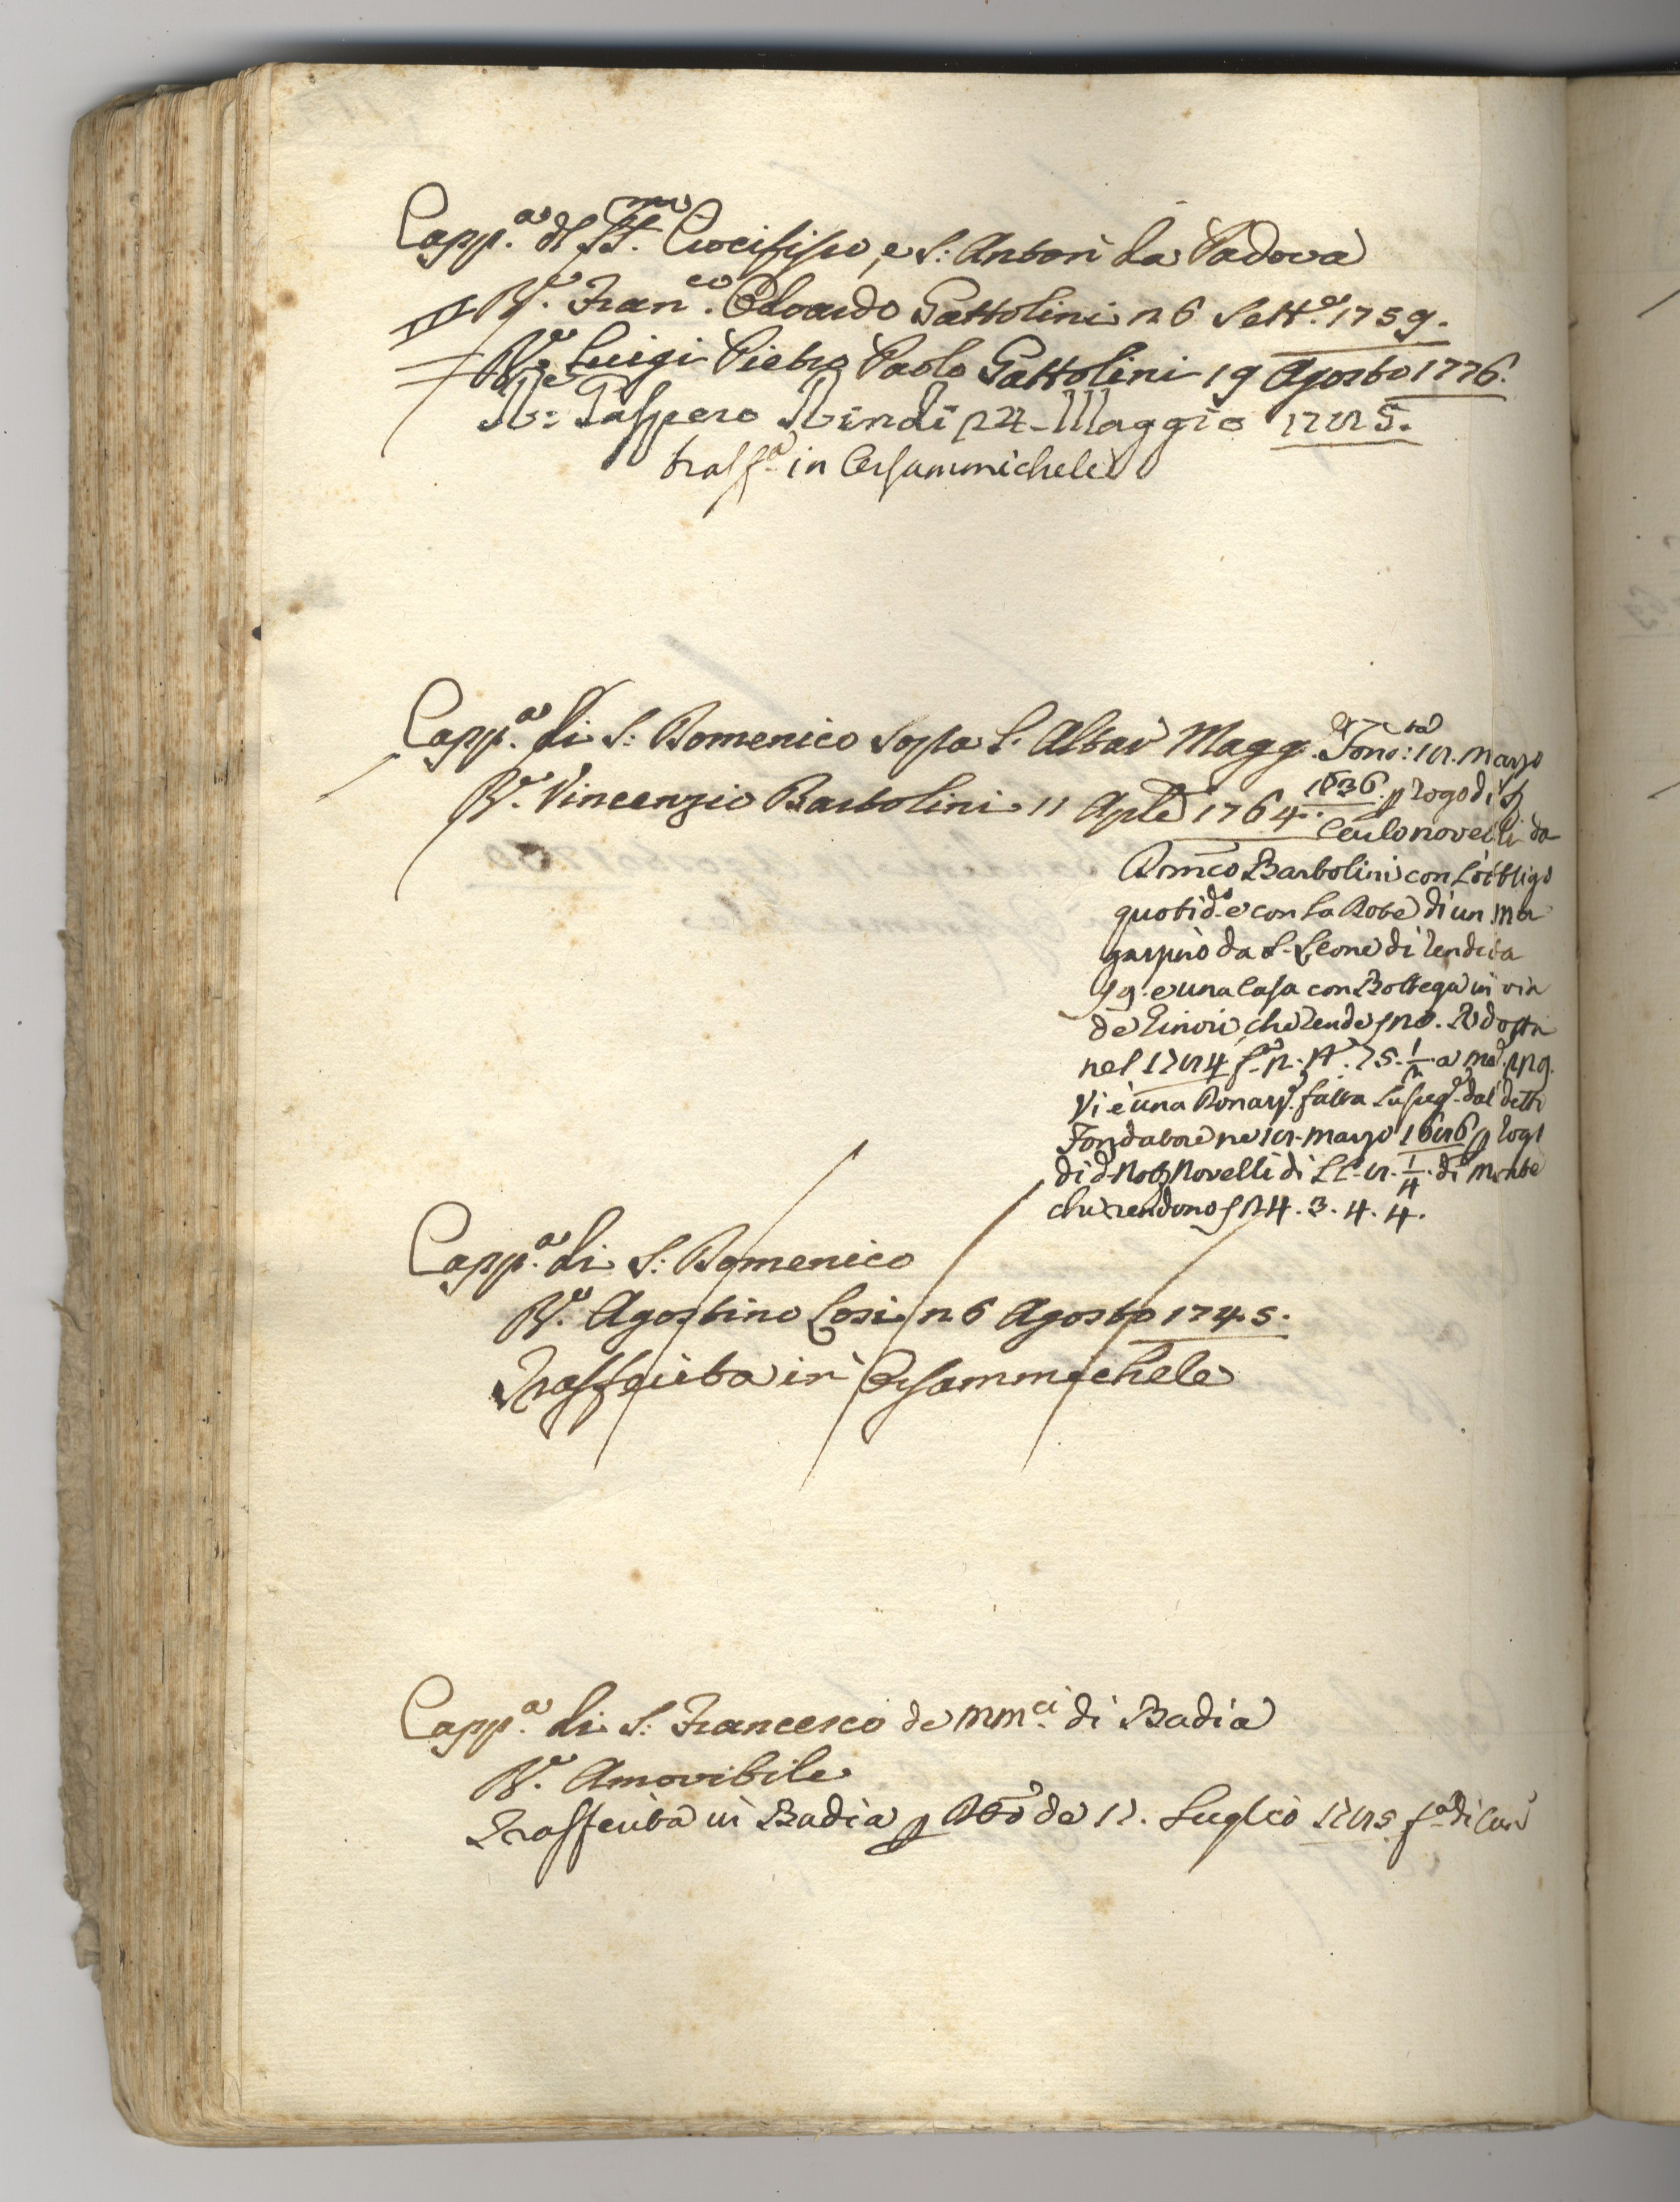 Capp.a di SS.mo Crocifisso, e S: Anton da Padova
R.e Fran.co Odoardo Gattolini 26 Sett.e 1759.
R.e Luigi Pietro Paolo Gattolini 19 Agosto 1776.
R.e Gaspero Nindi 24 Maggio 1785.
trasf.a in Orsammichele
Capp.a di S: Domenico sopra l'Altar Magg.e Fono: ta 18. marzo
R.e Vincenzio Bartolini 11 Aple 1764. 1636. p rogo di S
Carlo novelli da
Domco Bartolini con l'obbligo
quotid.o e con la Dote di un Ma
gazzino da S. Leone di rendita
19. e una Casa con Bottega in via
de Ginori, che rende 20. Ridotta
nel 1784 f.a 2. 75. 1/2 a 29.
Vi è una Donaz.e fatta la seg.e dal detto
Fondatore ne 18. marzo 1686 p rogo
di d. Not Novelli di LC. 8. 1/4 di Monte
che rendono 24. 3. 4. 4.
Capp.a di S: Domenico
R.e Agostino Cosi 26 Agosto 1745.
Trasferita in Orsammichele
Capp.a di S: Francesco de MM.ci di Badia
R.e Amovibile
Trasferita in Badia p de 12. Luglio 1785 f.a di